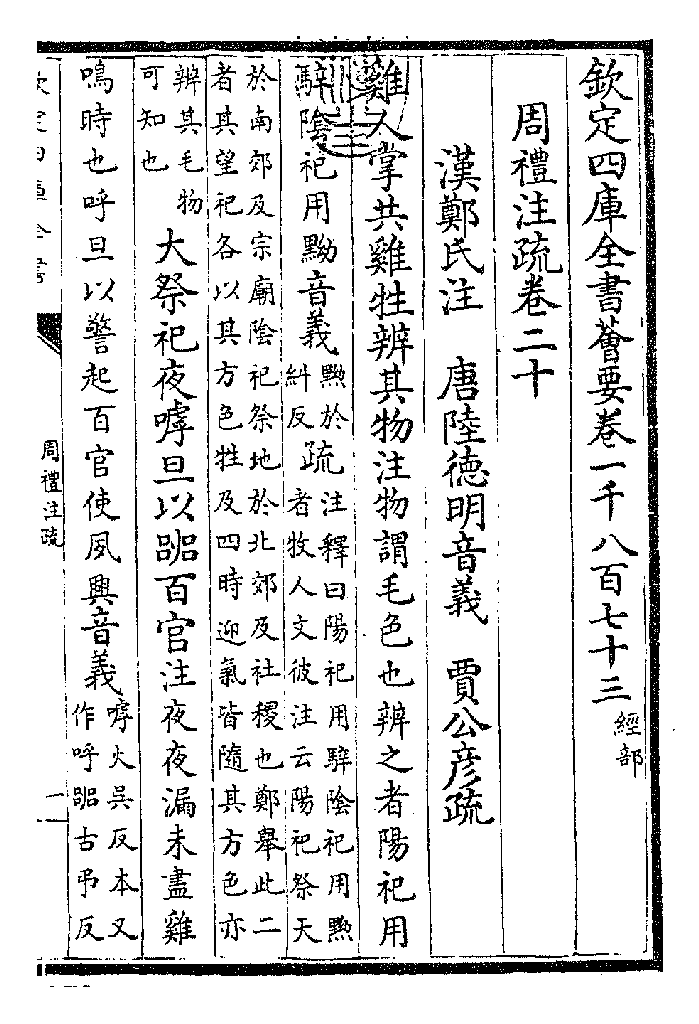 欽定四庫全書薈要卷一千八百七十三
經部
周禮注疏卷二十
漢鄭氏注　唐陸德明音義　賈公彥疏
雞人掌共雞牲辨其物注物謂毛色也辨之者陽祀用
騂陰祀用黝音義
黝於
糾反
疏
注釋曰陽祀用騂陰祀用黝
者牧人文彼注云陽祀祭天
於南郊及宗廟陰祀祭地於北郊及社稷也鄭舉此二
者其望祀各以其方色牲及四時迎氣皆隨其方色亦
辨其毛物
可知也
大祭祀夜嘑旦以嘂百官注夜夜漏未盡雞
鳴時也呼旦以警起百官使夙興音義
嘑火吳反本又
作呼嘂古弔反
欽定四庫全書
周禮注疏
一